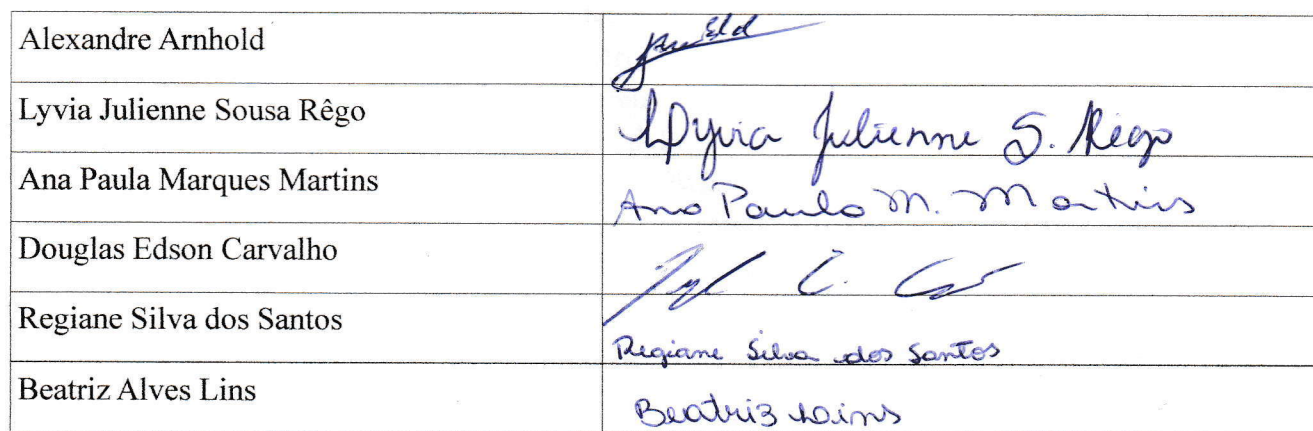 Alexandre Arnhold
Lyvia Julienne Sousa Rêgo Lyvia Julienne S. Rêgo
Ana Paula Marques Martins Ana Paula M. Martins
Douglas Edson Carvalho
Regiane Silva dos Santos Regiane Silva dos Santos
Beatriz Alves Lins Beatriz Lins